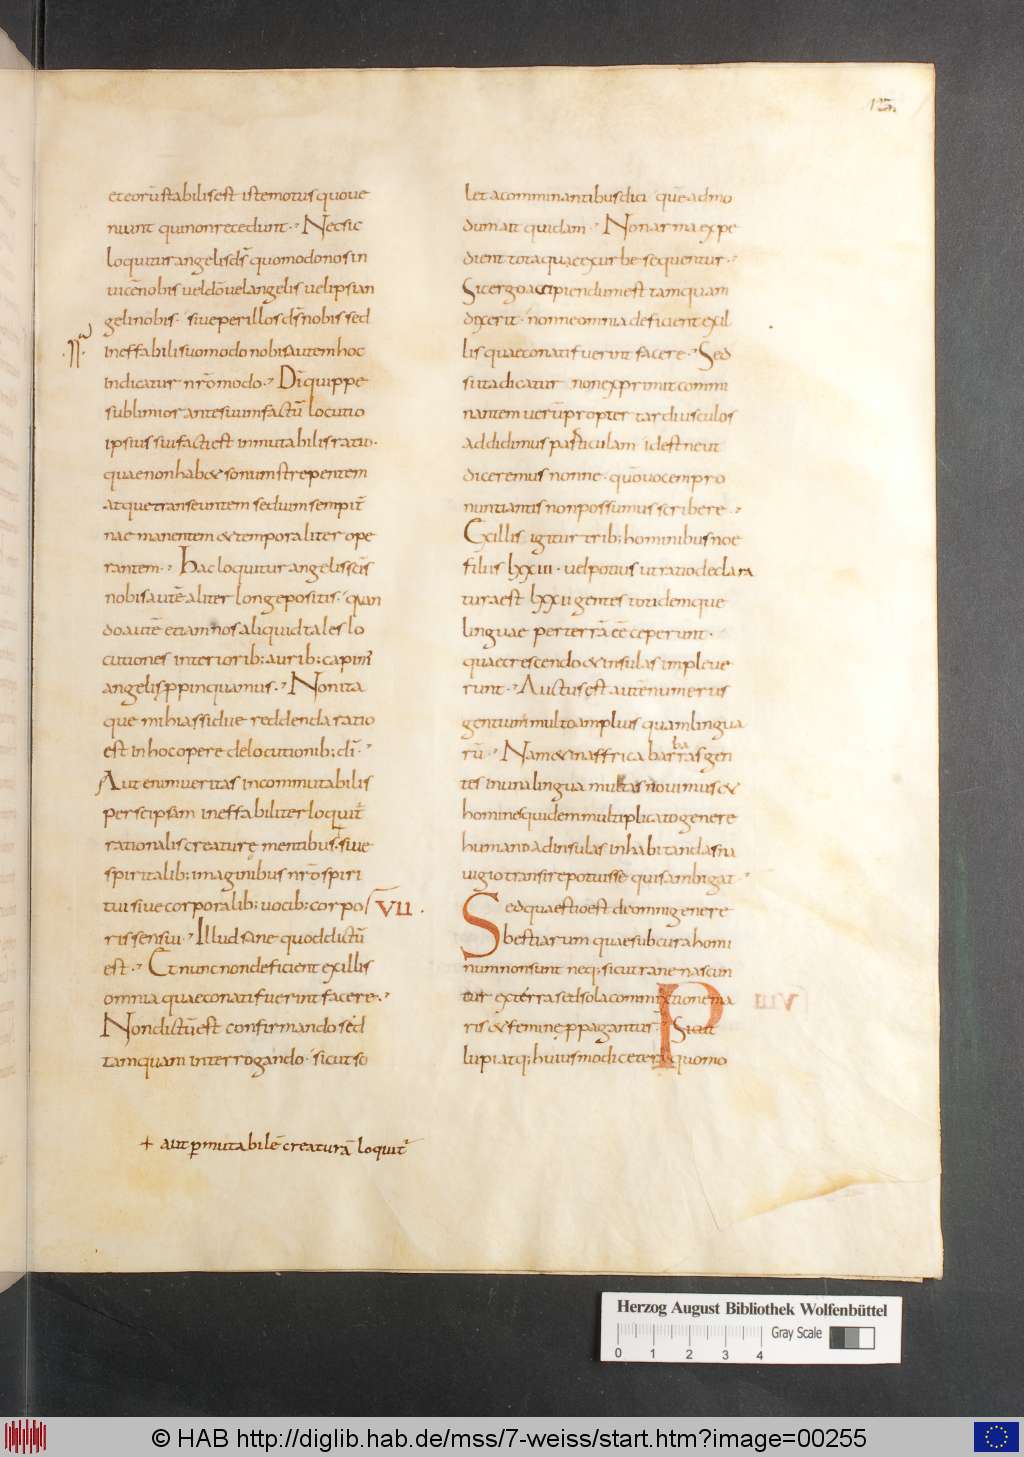 125.
et eorū stabilis est iste motus quo ue
niunt qui non recedunt. Nec sic
loquitur angelis ds̄ quomodo nos in
uicē nobis uel dō uel angelis uel ipsi an
geli nobis. siue per illos ds̄ nobis sed
ineffabili suo modo nobis autem hoc
indicatur nrō modo. Dī quippe
sublimior ante suum factū locutio
ipsius sui facti est inmutabilis ratio.
quae non hab& sonum strepentem
atque transeuntem sed uim sempit̄
nae manentem & temporaliter ope
rantem. Hac loquitur angelis sc̄is
nobis autē aliter longe positis. quan
do autē etiam nos aliquid tales lo
cutiones interiorib; aurib; capim̄
angelis ppinquamus. Non ita
que mihi assidue reddenda ratio
est in hoc opere de locutionib; dī.
Aut enim ueritas incommutabilis
per se ipsam ineffabiliter loquit̄
rationalis creaturę mentibus. siue
spiritalib; imaginibus nrō spiri
tui siue corporalib; uocib; corpo
VII.
ris sensui. Illud sane quod dictū
est. Et nunc non deficient ex illis
omnia quae conati fuerint facere.
Non dictū est confirmando sed
tamquam interrogando. sicut so
+ aut p mutabilē creaturā loquit̄
let a comminantibus dici quēadmo
dum ait quidam. Non arma expe
dient totaque ex urbe sequentur.
Sic ergo accipiendum est tamquam
dixerit. nonne omnia deficient ex il
lis quae conati fuerint facere. Sed
si ita dicatur non exprimit commi
nantem uerū propter tardiusculos
addidimus particulam id est ne ut
diceremus nonne. quō uocem pro
nuntiantis non possumus scribere.
Ex illis igitur trib; hominibus noe
filiis lxxiii. uel potius ut ratio declara
tura est lxxii gentes totidemque
linguae per terrā eē ceperunt.
quae crescendo & insulas impleue
runt. Auctus est autē numerus
gentium multo amplius quam lingua
rū. Nam & in affrica barbaras gen
tes in una lingua multas nouimus &
homines quidem multiplicato genere
humano ad insulas inhabitandas na
uigio transire potuisse quis ambigat.
Sed quaestio est de omni genere
bestiarum quae sub cura homi
num non sunt neq; sicut rane nascun
tur ex terra sed sola commixtione ma
VIII
ris & femine ppagantur. Sicut
lupi atq; huiusmodi ceteri quomo
Herzog August Bibliothek Wolfenbüttel
Gray Scale
0 1 2 3 4
© HAB http://diglib.hab.de/mss/7-weiss/start.htm?image=00255